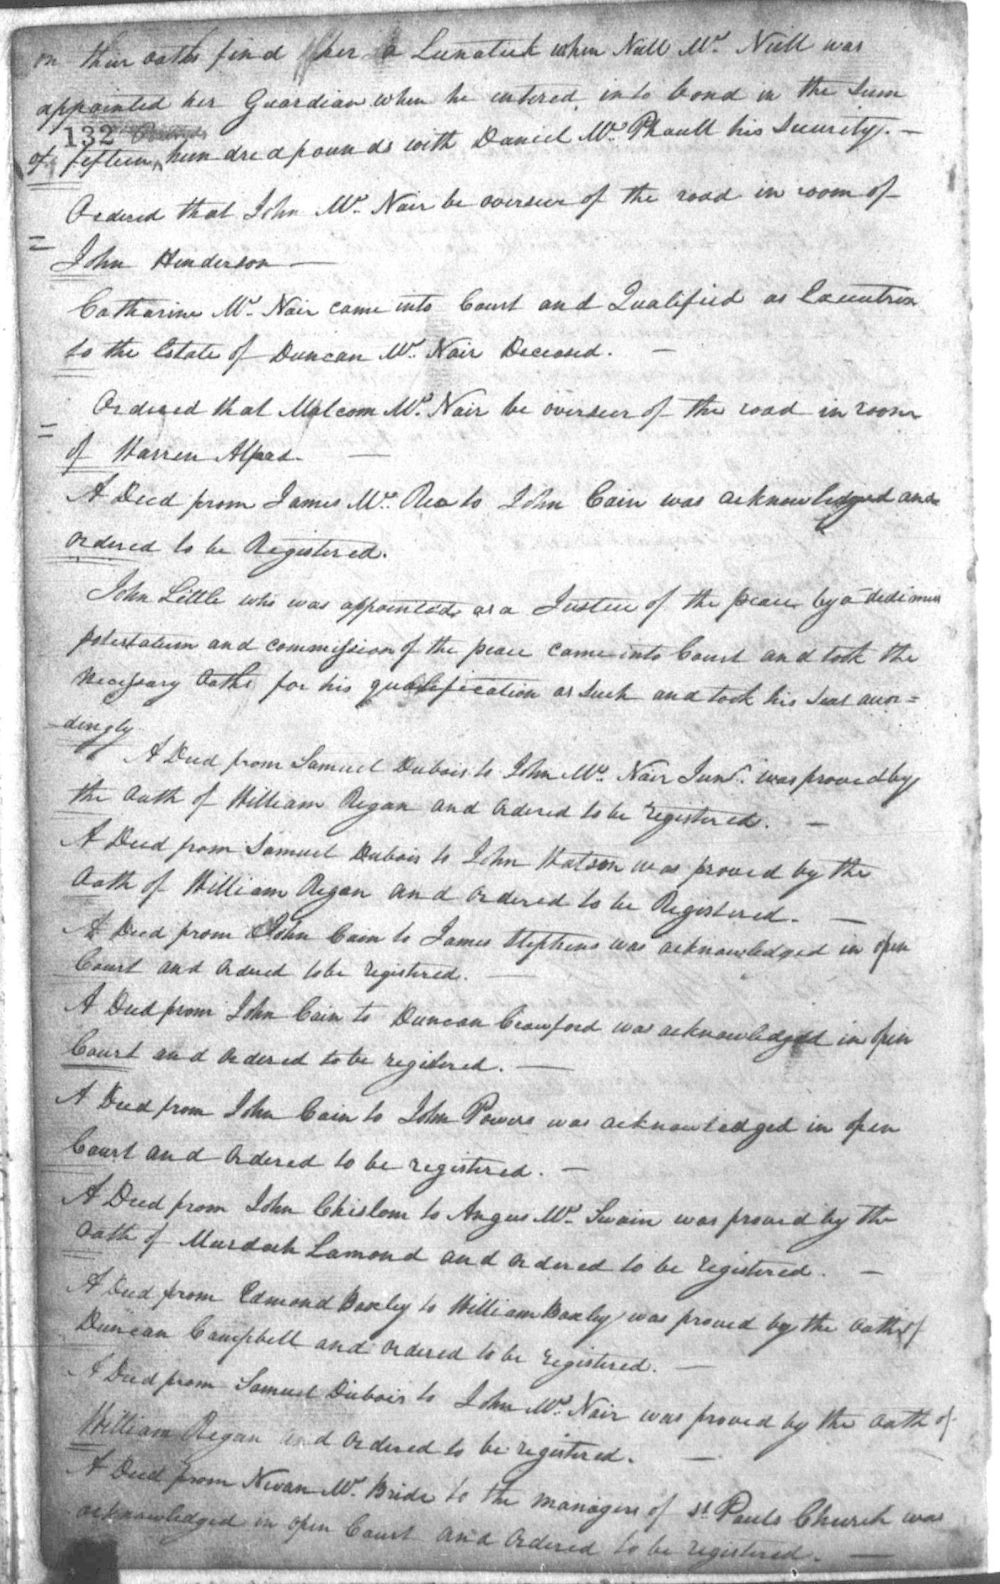 on their oaths find her a Lunatick when Niell Mc. Niell was
appointed her Guardian when he entered into bond in the Sum
132
of fifteen hundred pounds with Daniel Mc. Phaull his Security. —
Ordered that John Mc. Nair be overseer of the road in room of
John Henderson —
Catharine Mc. Nair came into Court and Qualified as Executrix
to the Estate of Duncan Mc. Nair Deceased. —
Ordered that Malcom Mc. Nair be overseer of the road in room
of Warren Alford. —
A Deed from James Mc. Rea to John Cain was acknowledged and
ordered to be Registered.
John Little who was appointed as a Justice of the peace by a dedimus
potestatum and commission of the peace came into Court and took the
necessary Oaths for his qualification as such and took his seat accor=
=dingly
A Deed from Samuel Dubois to John Mc. Nair Junr. was proved by
the Oath of William Regan and ordered to be registered. —
A Deed from Samuel Dubois to John Watson was proved by the
Oath of William Regan and ordered to be Registered. —
A Deed from John Cain to James Stephens was acknowledged in open
Court and ordered to be registered. —
A Deed from John Cain to Duncan Crawford was acknowledged in open
Court and ordered to be registered. —
A Deed from John Cain to John Powers was acknowledged in open
Court and ordered to be registered. —
A Deed from John Chislom to Angus Mc. Swain was proved by the
Oath of Murdoch Lamond and ordered to be registered. —
A Deed from Edmond Baxley to William Baxley was proved by the oath of
Duncan Campbell and ordered to be registered. —
A Deed from Samuel Dubois to John Mc. Nair was proved by the Oath of
William Regan and ordered to be registered. —
A Deed from Nevan Mc. Bride to the managers of St. Pauls Church was
acknowledged in open Court and ordered to be registered. —